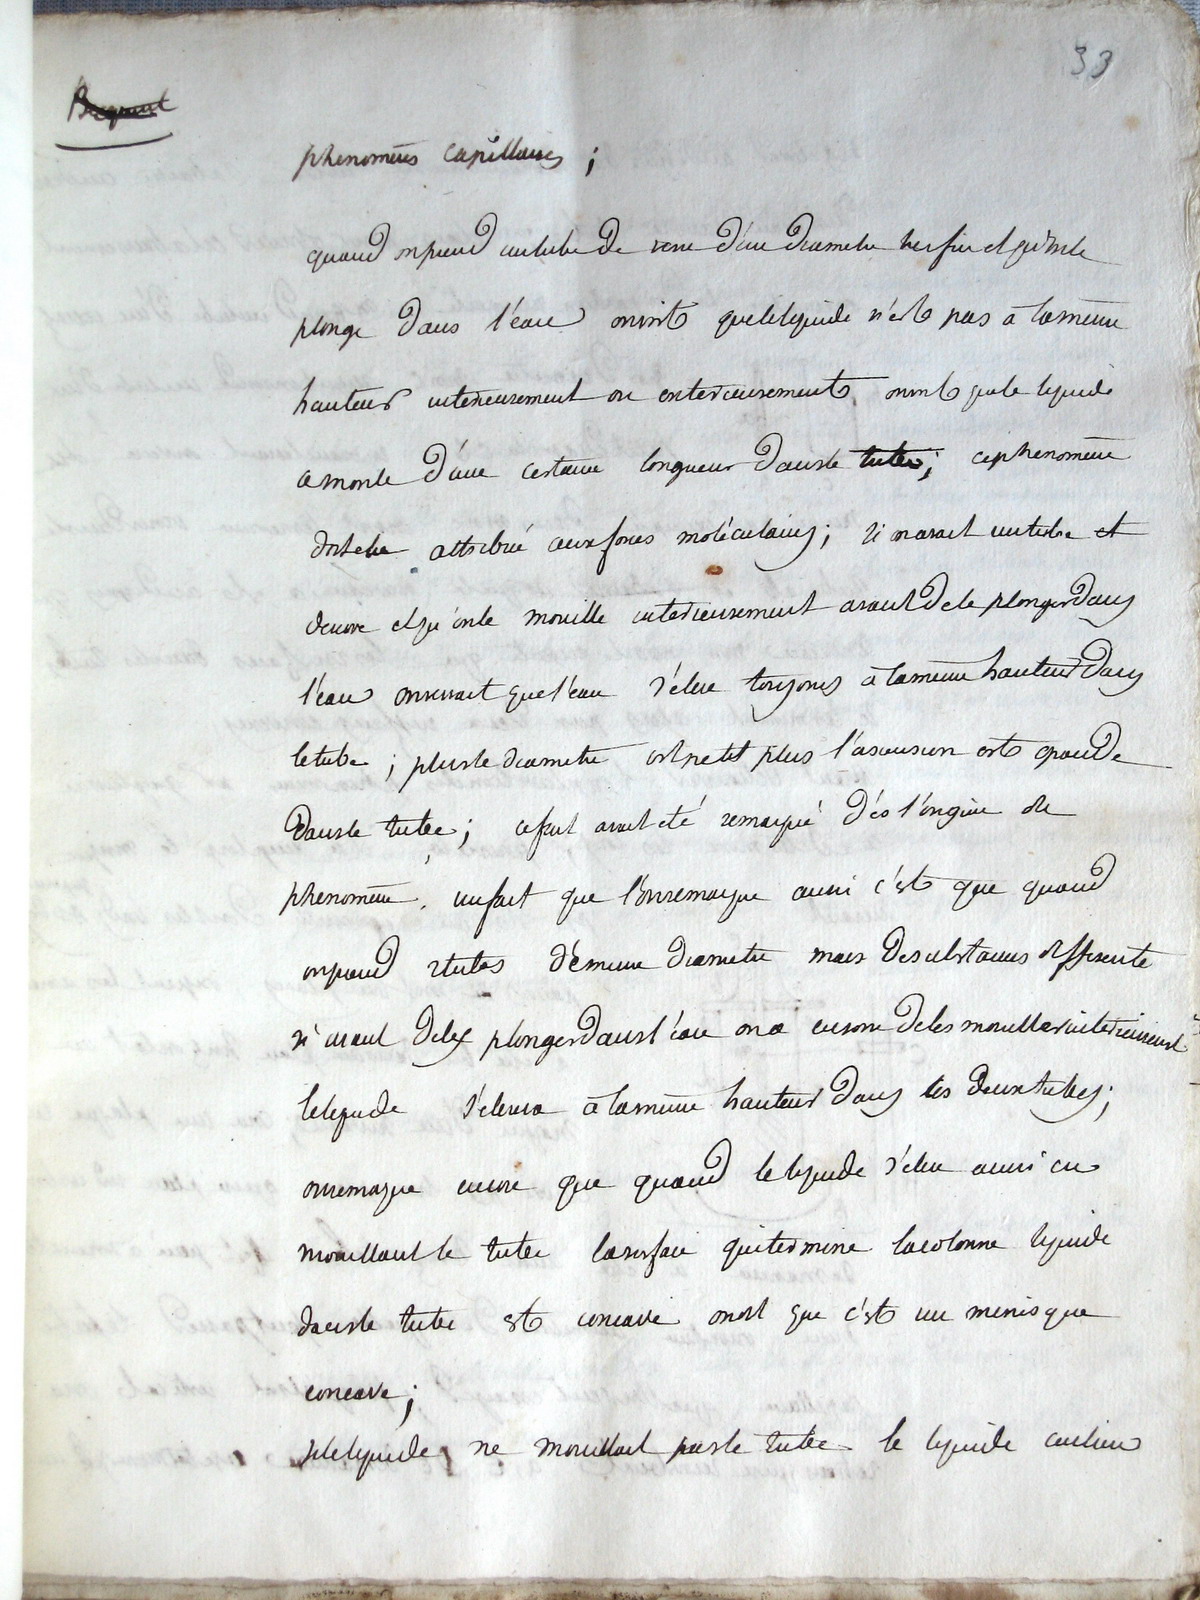 33
phenomenes capillaires ;
quand on prend un tube de verre d'un diametre tres fin et qu'on le
plonge dans l'eau on voit que le liquide n'est pas à la même
hauteur interieurement ou exterieurement on voit que le liquide
a monté d'une certaine longueur dans le tube ; ce phenomene
doit etre attribué aux forces moléculaires ; si on avait un tube et
de verre et qu'on le mouille interieurement avant de le plonger dans
l'eau on verrait que l'eau s'eleve toujours à la même hauteur dans
le tube ; plus le diametre est petit plus l'ascension est grande
dans le tube ; ce fait avait été remarqué dès l'origine de
phenomene . un fait que l'on remarque aussi c'est que quand
on prend 2 tubes de même diametre mais de substances differente
si avant de les plonger dans l'eau on a eu soin de les mouiller interieurement
le liquide s'elevera à la même hauteur dans les deux tubes ;
on remarque encore que quand le liquide s'eleve ainsi en
mouillant le tube la surface qui termine la colonne liquide
dans le tube est concave on dit que c'est un menisque
concave ;
si le liquide ne mouillait pas le tube le liquide au lieu